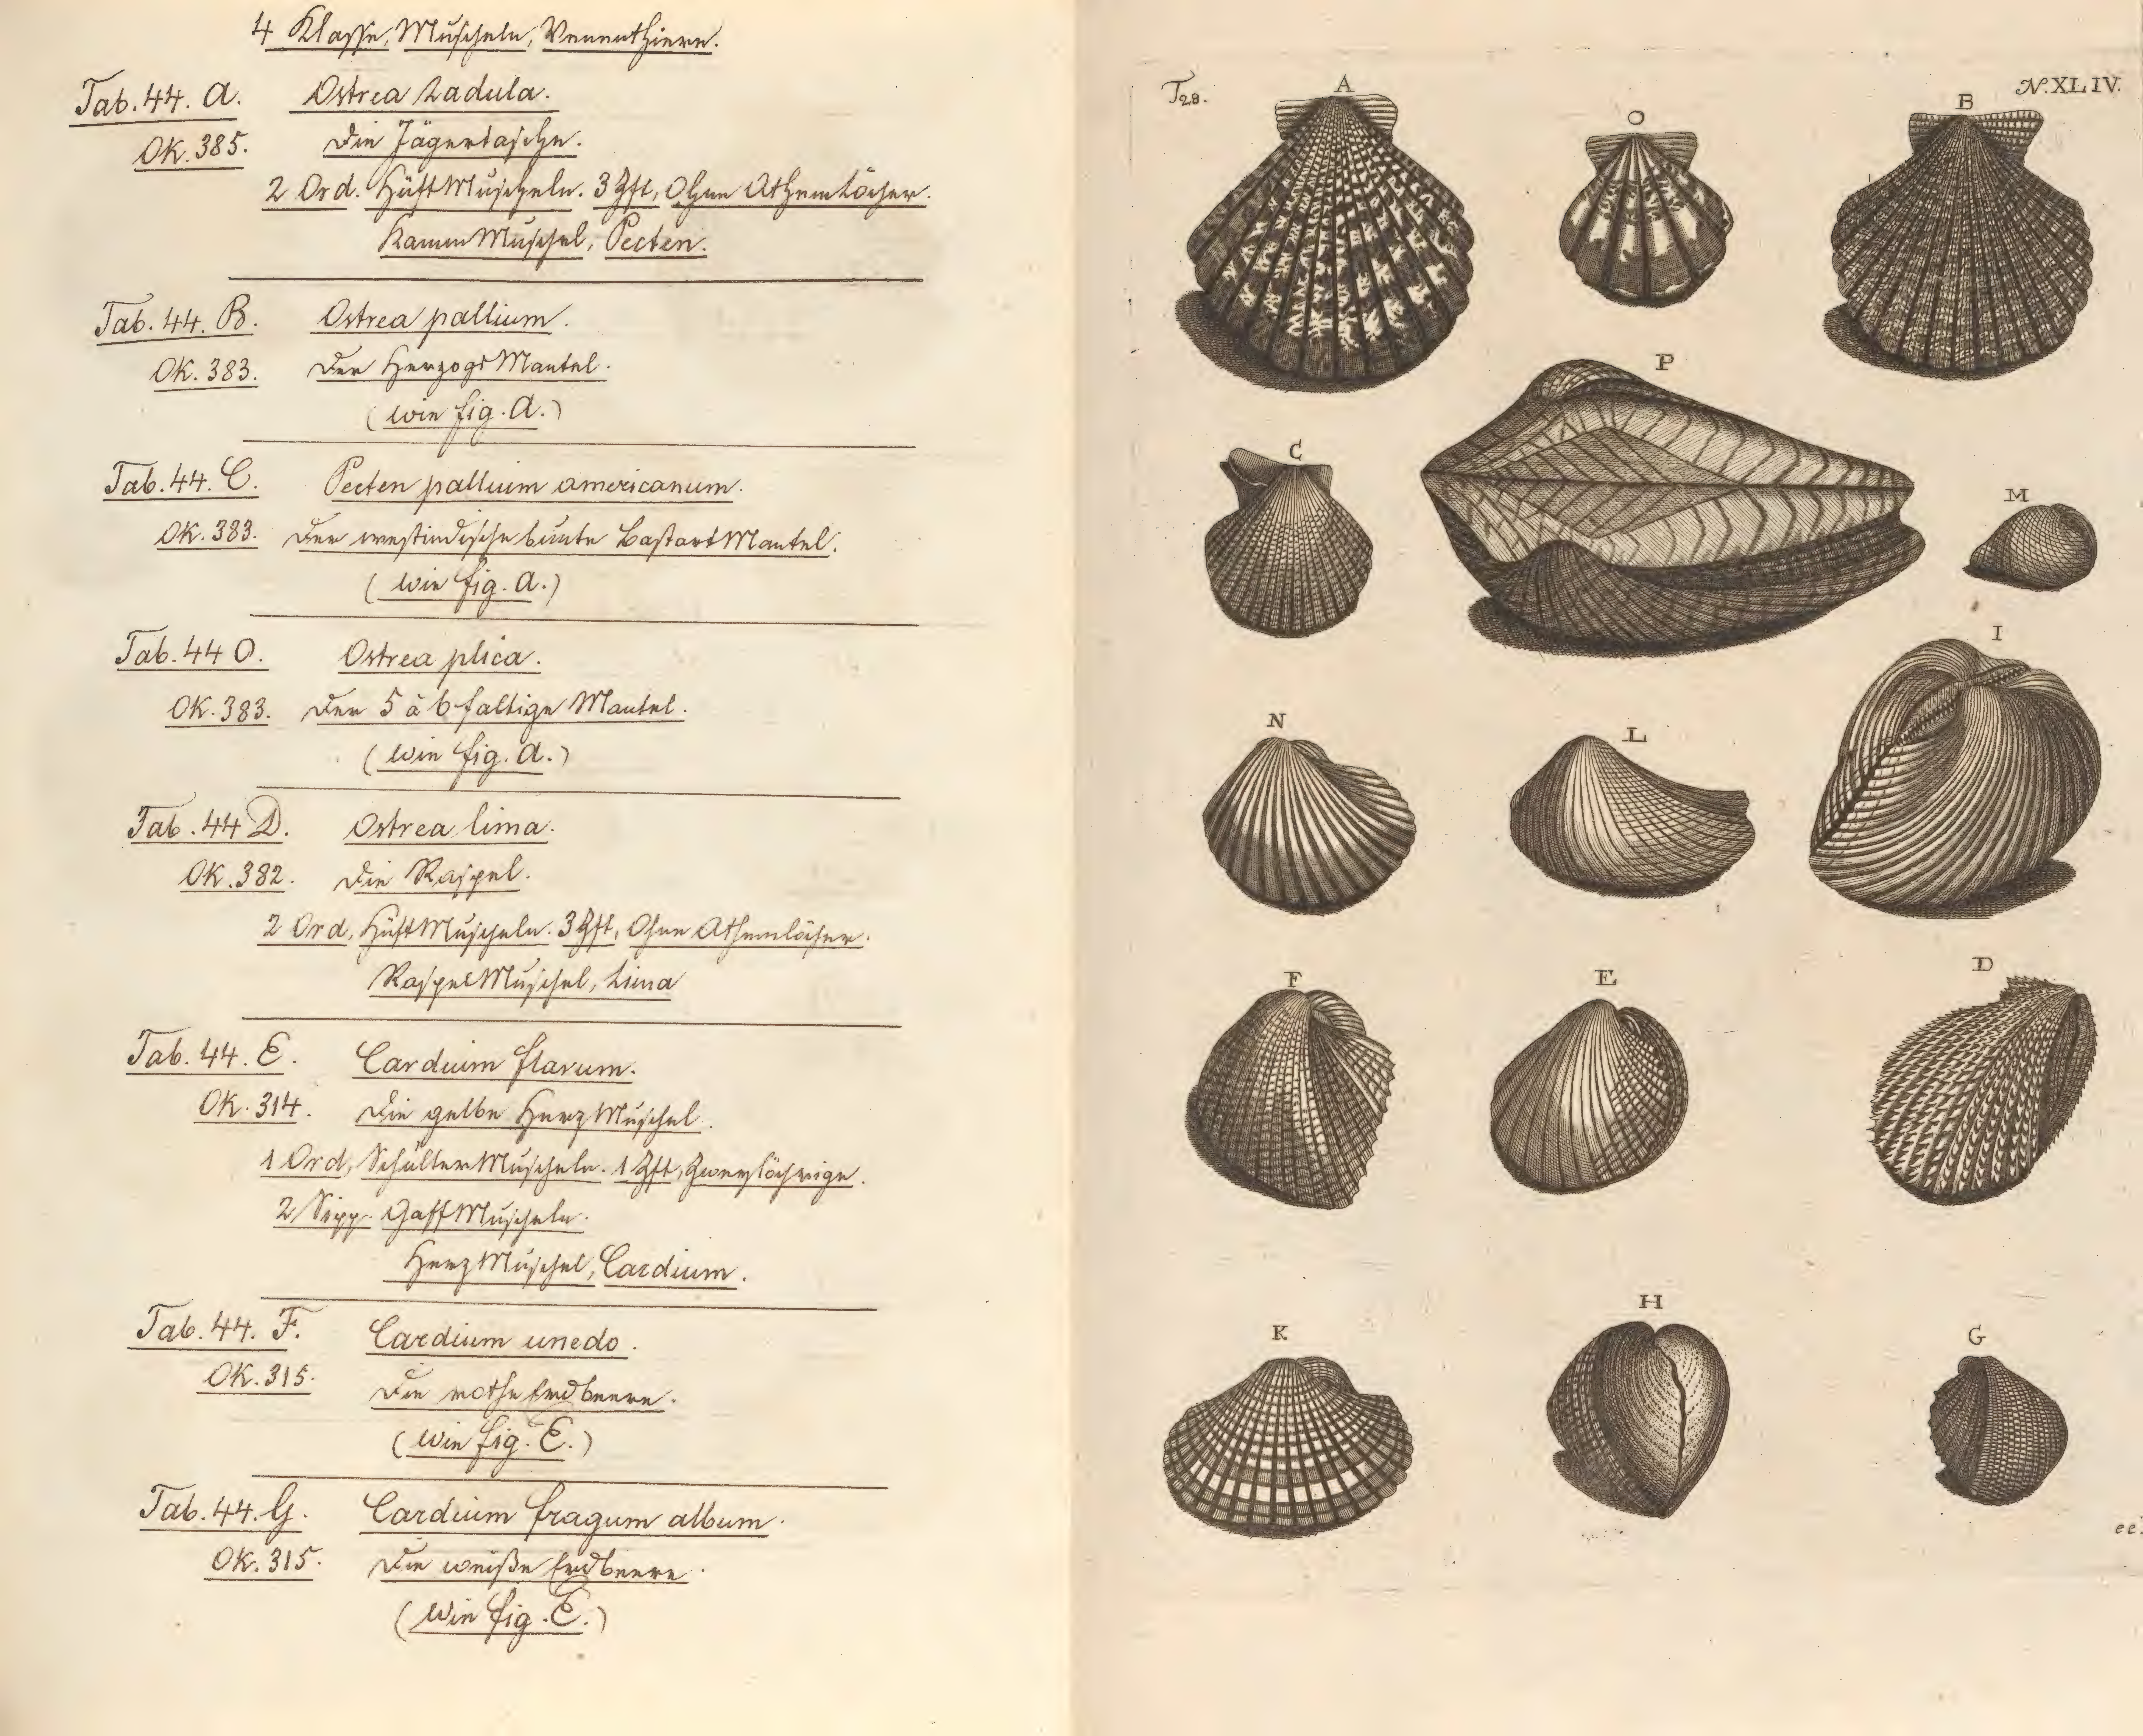 4 Klasse, Muscheln, Venenthiere.
Tab. 44. A. Ostrea radula.
Ok. 385. Die Jägertasche.
2 Ord. HüftMuscheln. 3 Zft, Ohne Athemlöcher.
KammMuschel, Pecten.
Tab. 44. B. Ostrea pallium.
Ok. 383. Der HerzogsMantel.
(wie fig. A.)
Tab. 44. C. Pecten pallium americanum.
Ok. 383. Der westindische bunte BastartMantel.
(wie fig. A.)
Tab. 44 O. Ostrea plica.
Ok. 383. Der 5 à 6 faltige Mantel.
(wie fig. A.)
Tab. 44 D. Ostrea lima.
Ok. 382. Die Raspel.
2 Ord, HüftMuscheln. 3 Zft, Ohne Athemlöcher.
RaspelMuschel, Lima
Tab. 44. E. Cardium flavum.
Ok. 314. Die gelbe HerzMuschel.
1 Ord, SchulterMuscheln. 1 Zft, Zweylöcherige.
2 Sipp. GaffMuscheln.
HerzMuschel, Cardium.
Tab. 44. F. Cardium unedo.
Ok. 315. Die rothe Erdbeere.
(wie fig. E.)
Tab. 44. G. Cardium fragum album.
Ok. 315. Die weiße Erdbeere.
(wie fig. E.)
T28. N. XLIV.
A
O
B
P
C
M
I
N
L
F
E
D
K
H
G
ee.